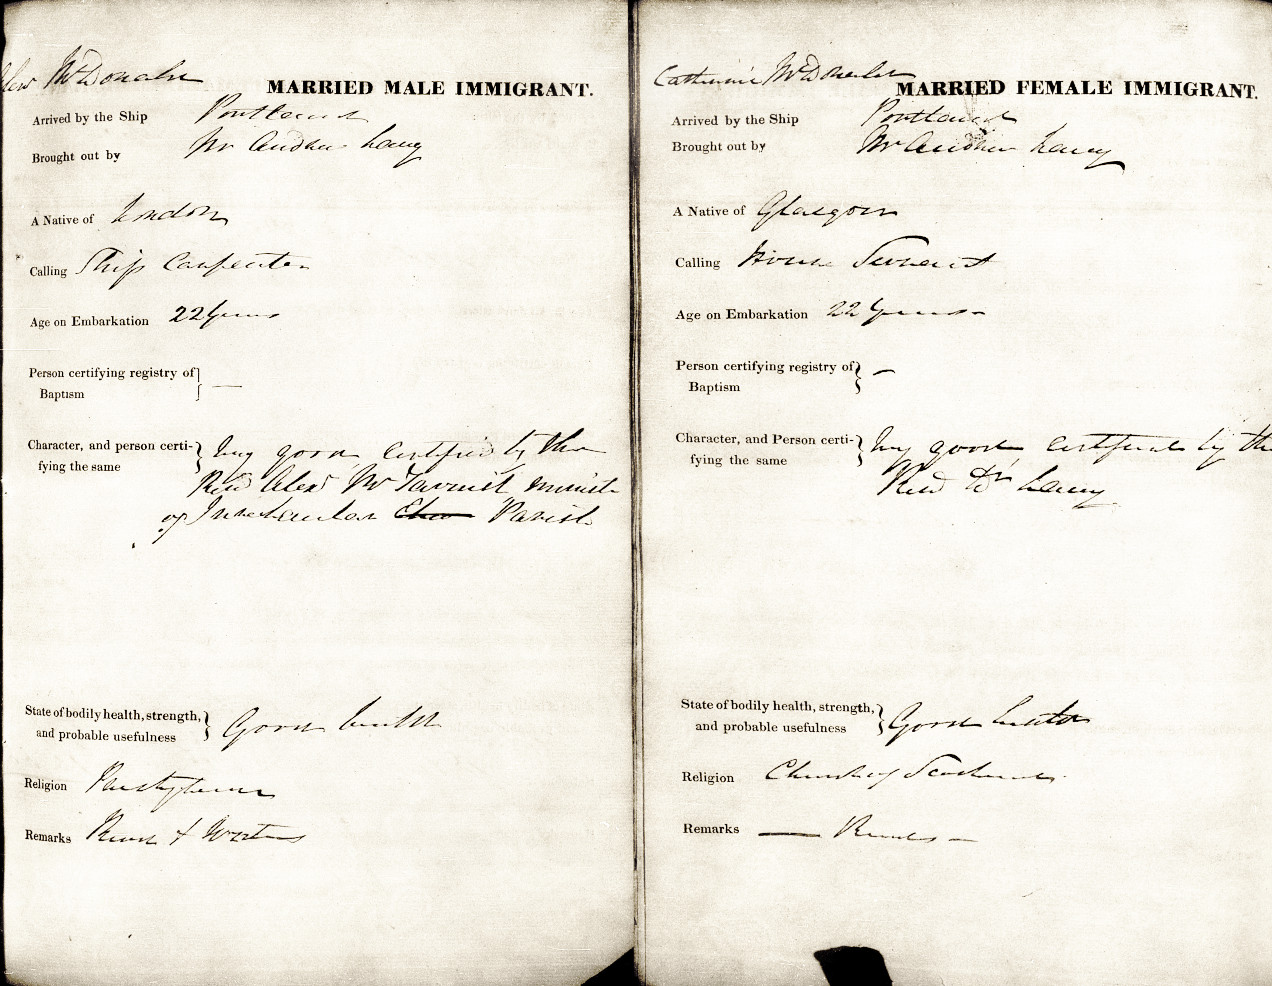 Alexr McDonald
MARRIED MALE IMMIGRANT.
Arrived by the Ship Portland
Brought out by Mr Andrew Lang
A Native of London
Calling Ship Carpenter
Age on Embarkation 22 Years
Person certifying registry of
Baptism —
Character, and person certi- Very good certified by the
fying the same Revd Alexr McTavish Minister
of Parish
State of bodily health, strength,
and probable usefulness Good health
Religion Presbyterian
Remarks Reads & Writes
Catherine McDonald
MARRIED FEMALE IMMIGRANT.
Arrived by the Ship Portland
Brought out by Mr Andrew Lang
A Native of Glasgow
Calling House Servant
Age on Embarkation 22 Years
Person certifying registry of
Baptism —
Character, and Person certi- Very good certified by the
fying the same Revd Dr Lang
State of bodily health, strength,
and probable usefulness Good health
Religion Church of Scotland
Remarks — Reads —